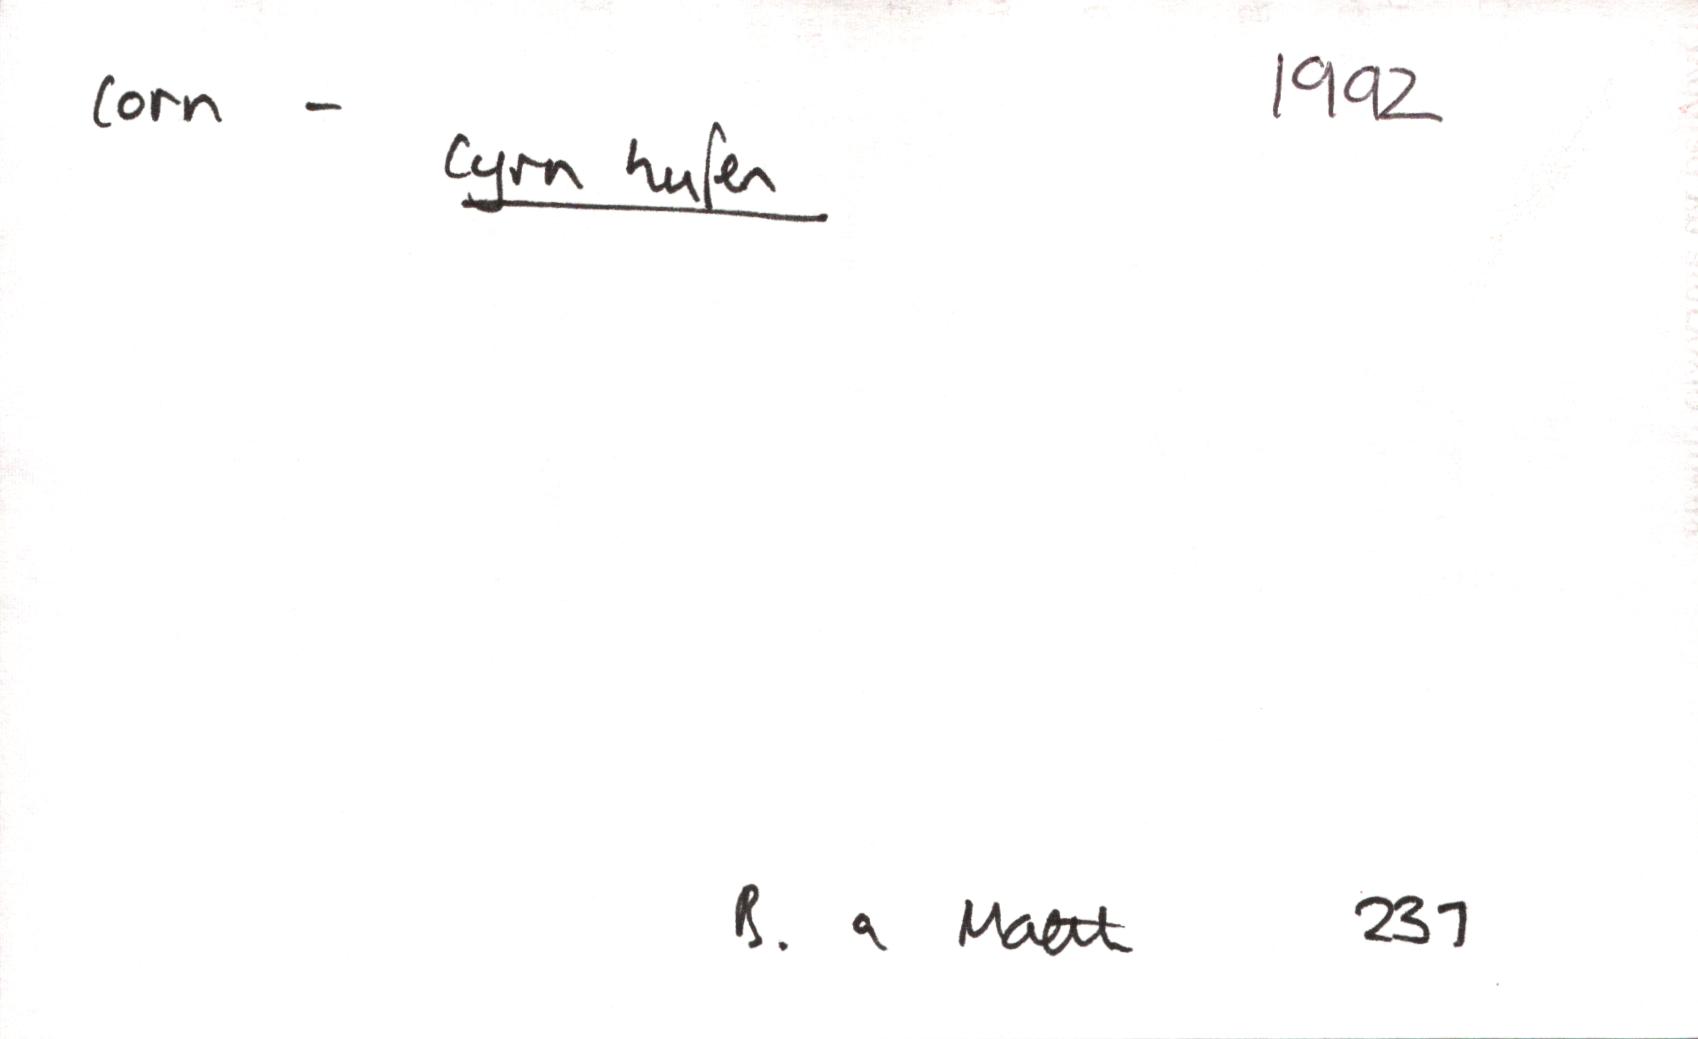 corn - 1992
cyrn hufen
B. a Maeth 237